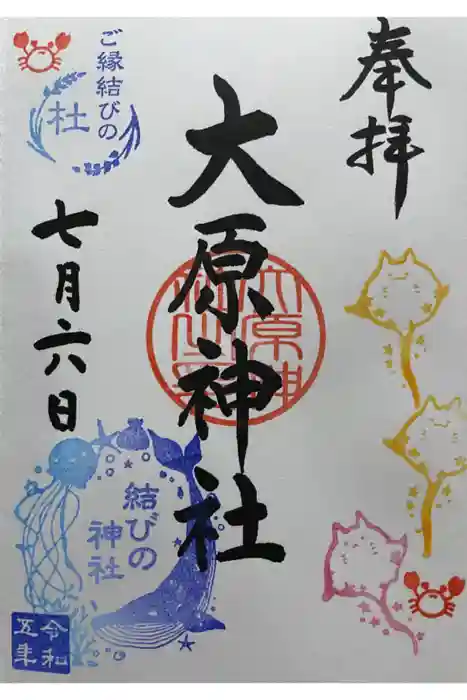 奉拝
大原神社
大原神社
七月六日
ご縁結びの
杜
結びの
神社
令和
五年